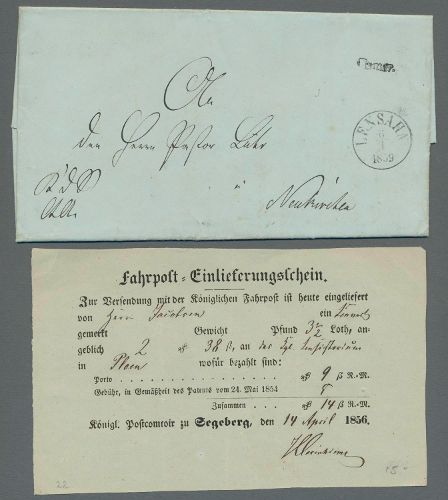 An
den Herrn Pastor Lühr
Neukirchen
LENSAHN
6
1859
Fahrpost-Einlieferungsschein.
Zur Versendung mit der Königlichen Fahrpost ist heute eingeliefert
von Herrn Jacobsen ein
gemerkt Gewicht Pfund 3 1/2 Loth, an-
geblich 2 38 ß, an das Kgl. Consistorium
in Ploen wofür bezahlt sind:
Porto 9 ß R.-M.
Gebühr, in Gemäßheit des Patents vom 24. Mai 1854 5
Zusammen 14 ß R.-M.
Königl. Postcomtoir zu Segeberg, den 14 April 1856.
22
15.-